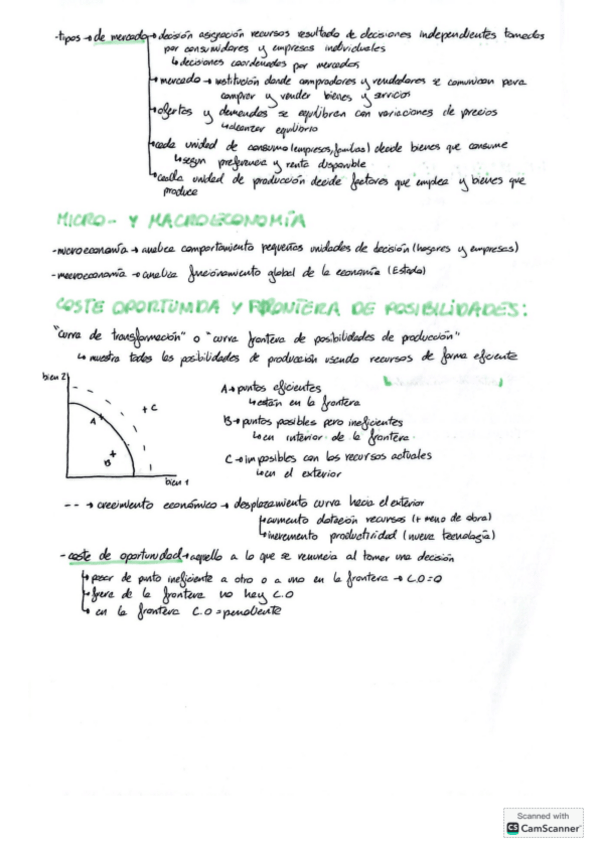 -tipos → de mercado → decisión asignación recursos resultado de decisiones independientes tomadas
por consumidores y empresas individuales
↳ decisiones coordenados por mercados
→ mercado → institución donde compradores y vendedores se comunican para
comprar y vender bienes y servicios
→ ofertas y demandas se equilibran con variaciones de precios
↳ alcanzar equilibrio
→ cada unidad de consumo (empresas, familias) decide bienes que consume
↳ según preferencia y renta disponible
→ cada unidad de producción decide factores que emplea y bienes que
produce
MICRO- Y MACROECONOMÍA
-microeconomía → analiza comportamiento pequeñas unidades de decisión (hogares y empresas)
-macroeconomía → analiza funcionamiento global de la economía (Estado)
COSTE OPORTUNIDA Y FRONTERA DE POSIBILIDADES:
"curva de transformación" o "curva frontera de posibilidades de producción"
↳ muestra todas las posibilidades de producción usando recursos de forma eficiente
bien 2
A
B
C
bien 1
A → puntos eficientes
↳ están en la frontera
B → puntos posibles pero ineficientes
↳ en interior de la frontera
C → imposibles con los recursos actuales
↳ en el exterior
-- → crecimiento económico → desplazamiento curva hacia el exterior
↳ aumento dotación recursos (+ mano de obra)
↳ incremento productividad (nueva tecnología)
- coste de oportunidad → aquello a lo que se renuncia al tomar una decisión
↳ pasar de punto ineficiente a otro o a uno en la frontera → C.O=0
↳ fuera de la frontera no hay C.O
↳ en la frontera C.O = pendiente
Scanned with
CS CamScanner